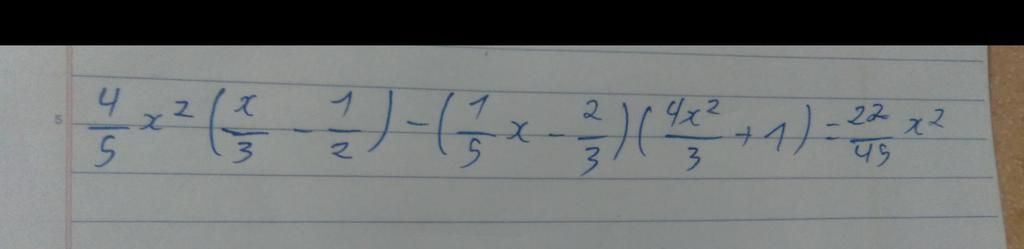 4/5 x² (x/3 - 1/2) - (1/5 x - 2/3)(4x²/3 + 1) = 22/45 x²